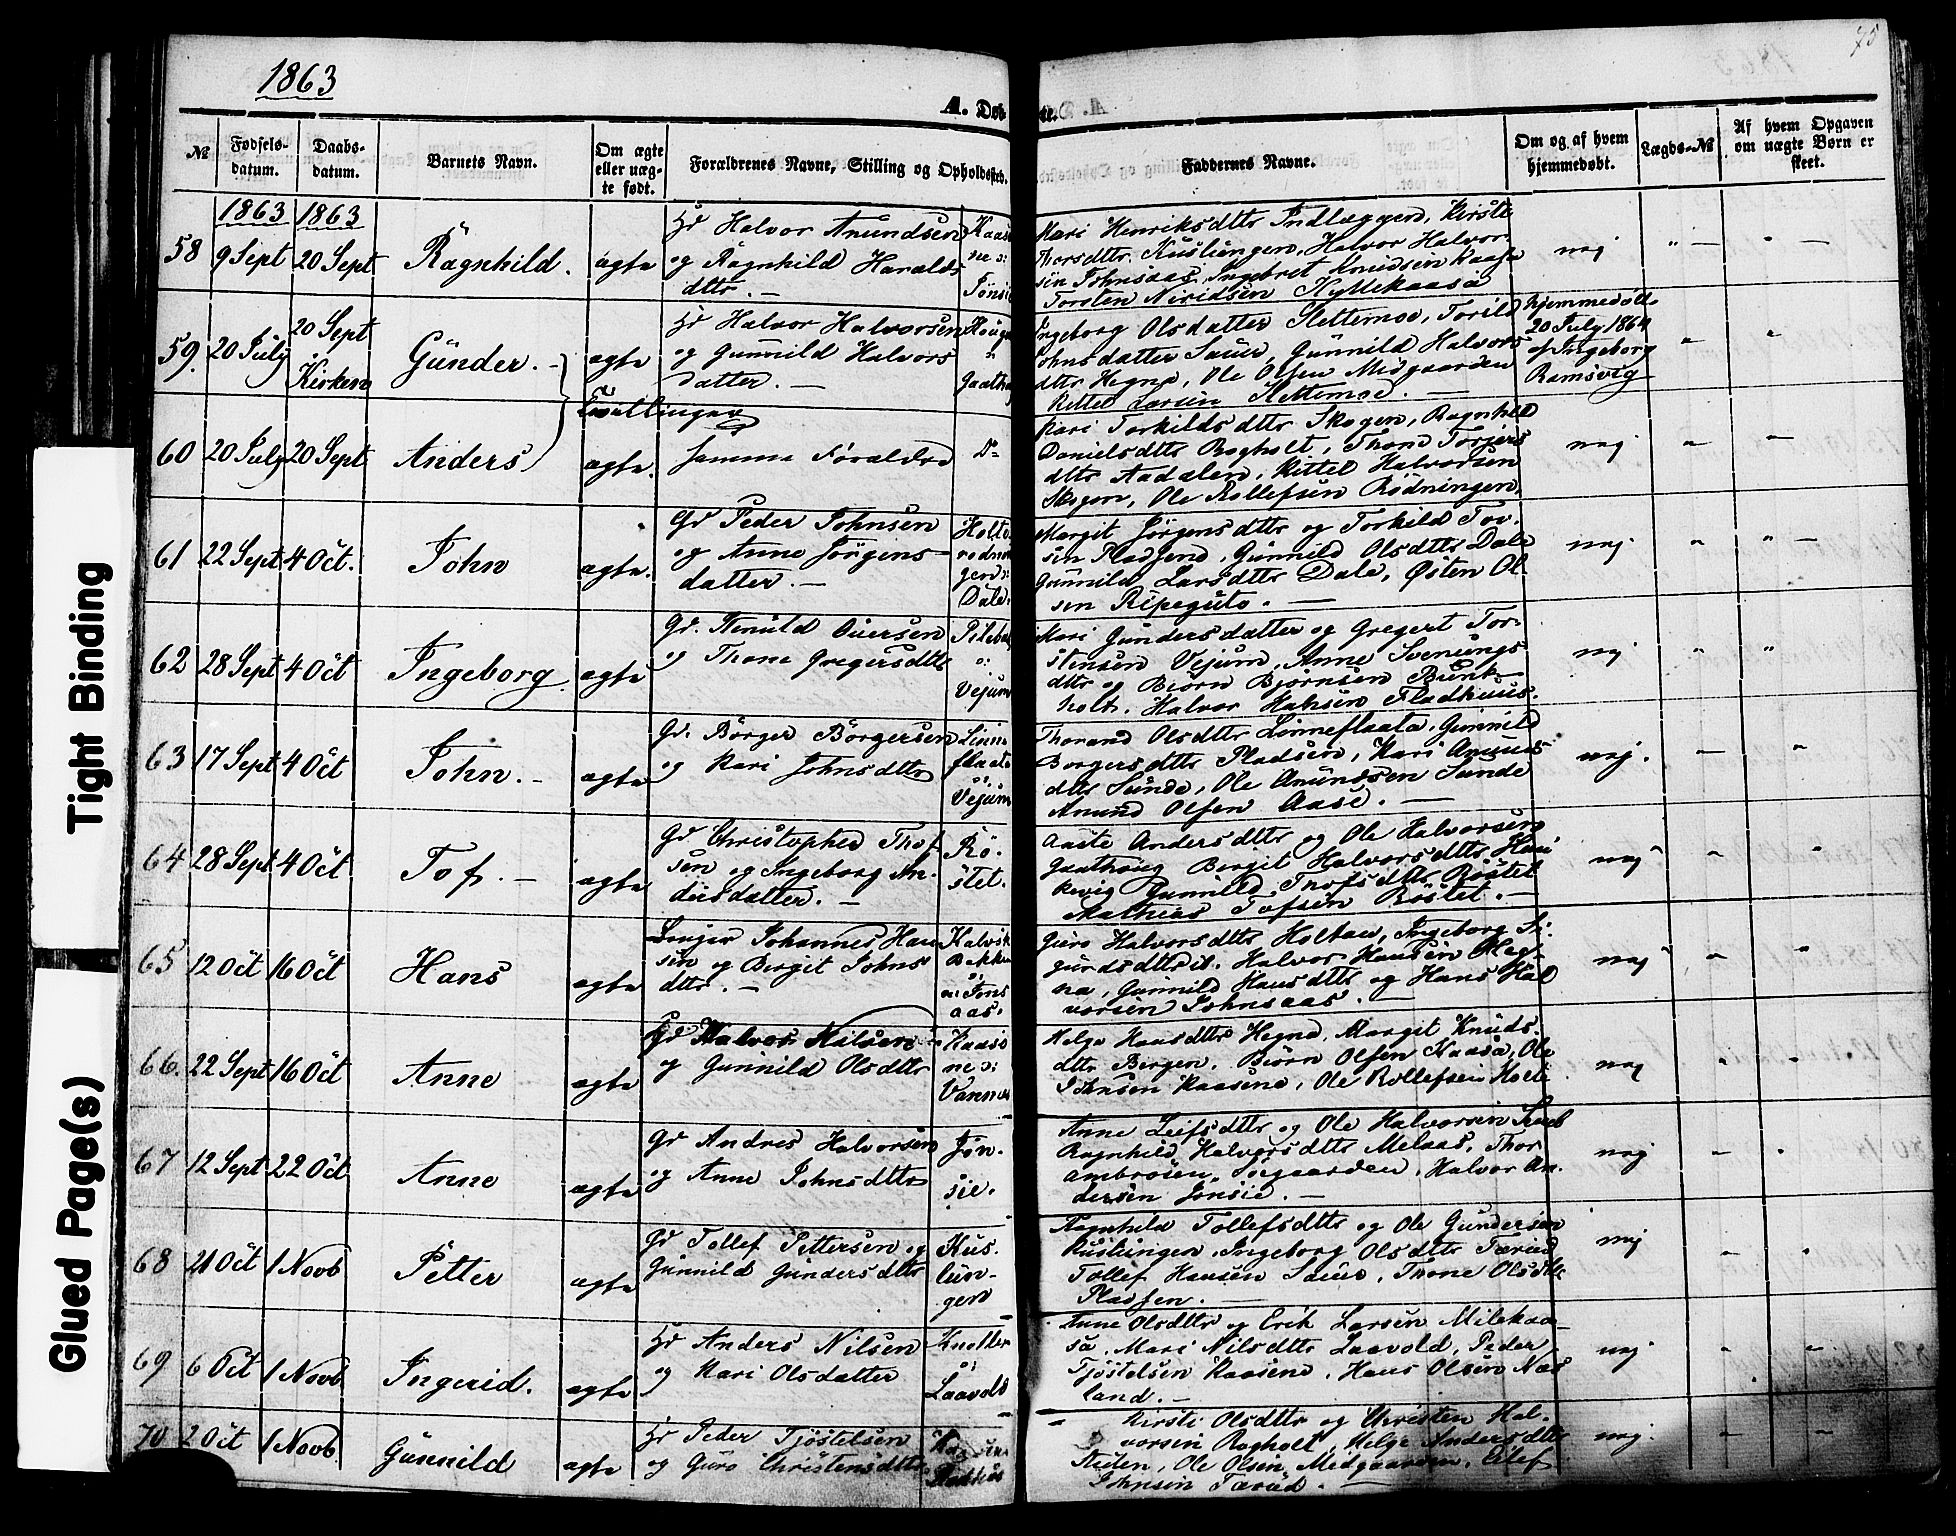 1863
75
A. Døb
te.
№
Fødsels-
datum.
Daabs-
datum.
Barnets Navn.
Om ægte
eller uæg-
te født.
Forældrenes Navne, Stilling og Opholdssted.
Faddernes Navne.
Om og af hvem
hjemmedøbt.
Lægds-№
Af hvem Opgaven
om uægte Børn er
skeet.
1863 1863
58 9 Sept 20 Sept Ragnhild. ægte
Hd Halvor Anundsen
og Ragnhild Haralds
dttr. —
Kari Henriksdttr Indlæggern, Kirsti
Thorsdttr Kuslungen, Halvor Halvor-
sen Johnsaas, Ingebret Knudsen Kaasa
Torsten Niridsen Hyllekaasa
nej
59. 20 July 20 Sept
Kirken
Gunder. — ægte
Tvillinger
Hd Halvor Halvorsen
og Gunnild Halvors
datter. —
Ingeborg Olsdatter Slettemoe, Torild
Johnsdatter Saue, Gunnild Halvors
dttr Hegna, Ole Olsen Midgaarden
Kittel Larsen Slettemoe. —
hjemmedøbt
20 July 1864
af Ingeborg
Ramsvig
60 20 July 20 Sept Anders ægte.
Samme Forældre
Do
Kari Torkildsdttr Skogen, Ragnhild
Danielsdttr Rogholt, Thone Torjers
dttr Aadalen, Kittel Halvorsen
Skogen, Ole Rollefsen Rødningen,
nej
61 22 Sept 4 Oct. John ægte.
Gd Peder Johnsen
og Anne Jørgens-
datter. —
Holte
rødnin
gen
Dale.
Margit Jørgensdttr og Torkild Tov-
sen Pladsene, Gunnild Olsdttr Dale
Gunnild Larsdttr Dale, Østen Ol-
sen Ripeguto. —
nej
62 28 Sept 4 Oct Ingeborg ægte
og Thone Gregersdttr
Vejum
Mari Gundersdatter og Gregert Tor-
stensen Vejum, Anne Svenungs
dttr og Biørn Bjørnsen Bunk-
holt, Halvor Hansen Fladhuus.
nej
63 17 Sept 4 Oct John. — ægte
Gd. Børger Børgersen
og Kari Johnsdttr
Linne
flaata
Vejum
Thorand Olsdttr Lønneflaata, Gunnild
Borgersdttr Pladsen, Kari Anunds-
dttr Sunde, Ole Anundsen Sunde
Anund Olsen Aase. —
nej.
64 28 Sept 4 Oct Tof. — ægte
Gd Christopher Thof
sen og Ingeborg An-
dersdatter. —
Rø-
stet.
Aaste Andersdttr og Ole Halvorsen
Gaathoug Birgit Halvorsdttr
Gunnild Thofsdttr Røstet
Mathias Tofsen Røstet. —
nej
65 12 Oct 16 Oct Hans ægte
Johannes Han
sen og Bergit Johns
dttr. —
Kalvik
Bekken
Jons
aas.
Guro Halvorsdttr Holtan, Ingeborg Si-
gurdsdttr. Halvor Hansen Heg-
na, Gunnild Hansdttr og Hans Hal
vorsen Johnsaas. —
nej
66. 22 Sept 16 Oct Anne ægte
Gd Halvor Nilsen
og Gunnild Olsdttr
Kaase
ne
Vannes
Helga Hansdttr Hegna, Margit Knuds-
dttr Bergen, Biørn Olsen Kaasa, Ole
Johnsen Kaasene, Ole Rollefsen Holte
nej
67 12 Sept 22 Oct Anne ægte
Gd Andres Halvorsen
og Anne Johnsdttr
Jøn-
sie.
Anne Leifsdttr og Ole Halvorsen
Ragnhild Halvorsdttr Melaas, Thor
Ambrosen, Halvor An-
dersen Jonsie. —
nej
68 21 Oct 1 Novb Petter ægte
Gd Tollef Pettersen og
Gunnild Gundersdttr
Kus-
lun-
gen
Ragnhild Tollefsdttr og Ole Gundersen
Kuslungen, Ingeborg Olsdttr Tærud
Tollef Hansen Saue, Thone Olsdttr
Pladsen. —
nej
69 6 Oct 1 Novb Ingerid. ægte
Hd Anders Nilsen
og Kari Olsdatter
Laavold
Anne Olsdttr og Erik Larsen Milekaa-
sa, Mari Nilsdttr Laavold, Peder
Tjøstelsen Kaasene, Hans Olsen Næs
land. —
nej
70 2 Oct 1 Novb Gunnild ægte
Hd Peder Tjøstelsen
og Guro Christensdttr
Kirsti Olsdttr og Christen Hal-
vorsen Rogholt, Helge Andersdttr
Ole Olsen Midgaarden, Eilef
Johnsen Tærud. —
nej.
Tight Binding
Glued Page(s)